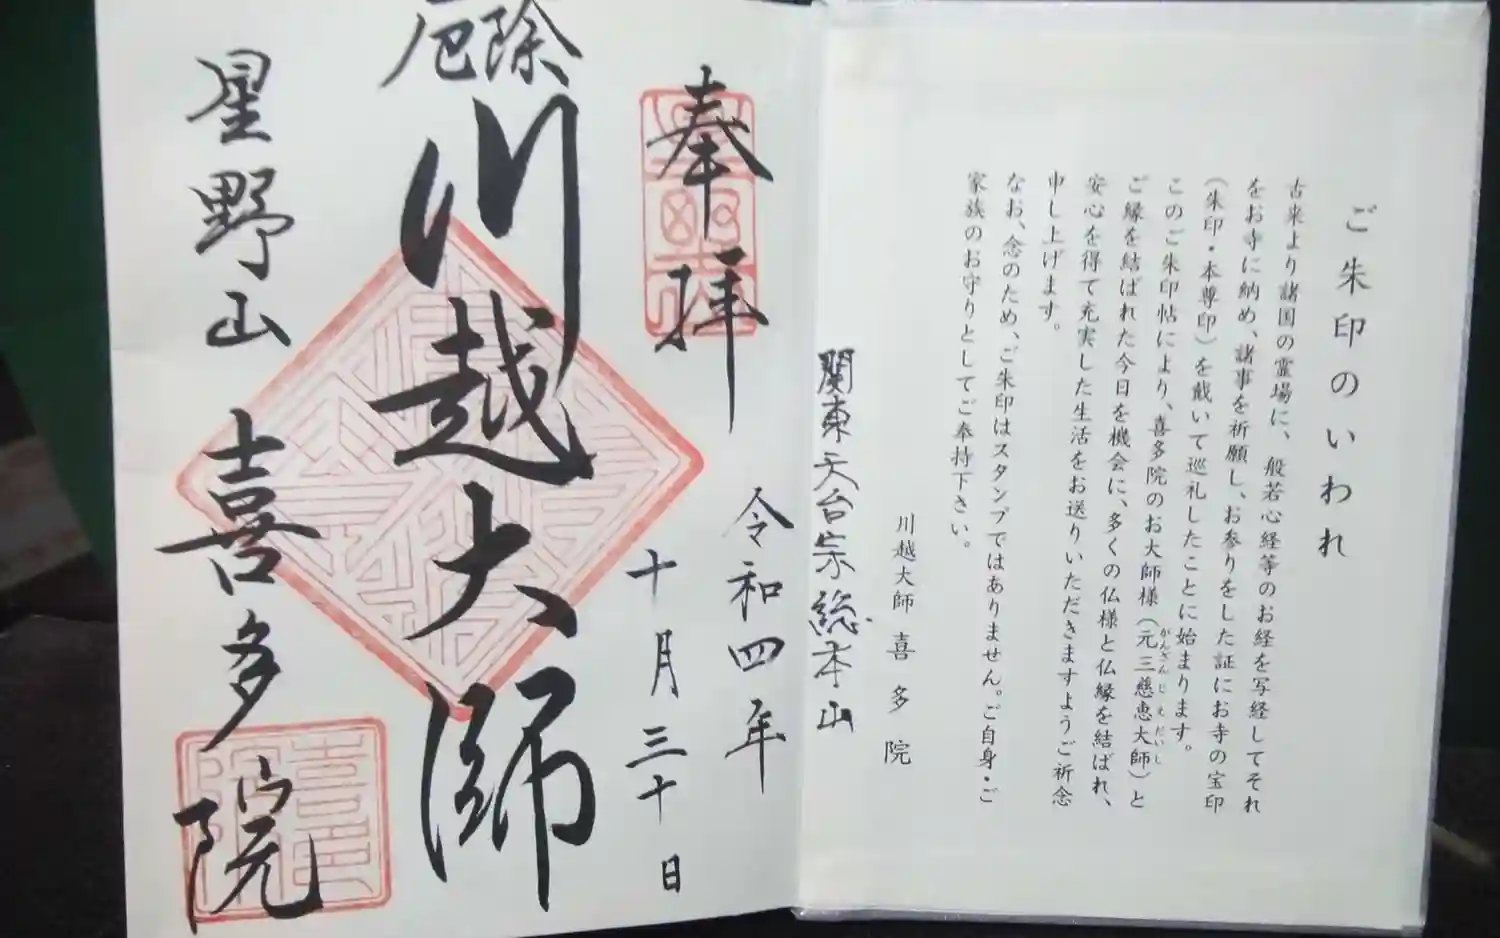 ご朱印のいわれ
古来より諸国の霊場に、般若心経等のお経を写経してそれ
をお寺に納め、諸事を祈願し、お参りをした証にお寺の宝印
(朱印・本尊印)を戴いて巡礼したことに始まります。
このご朱印帖により、喜多院のお大師様(元三慈恵大師)と
がんざんじえだいし
ご縁を結ばれた今日を機会に、多くの仏様と仏縁を結ばれ、
安心を得て充実した生活をお送りいただきますようご祈念
申し上げます。
なお、念のため、ご朱印はスタンプではありません。ご自身・ご
家族のお守りとしてご奉持下さい。
川越大師 喜多院
関東天台宗総本山
奉拝
令和四年
十月三十日
厄除
川越大師
星野山
喜多院